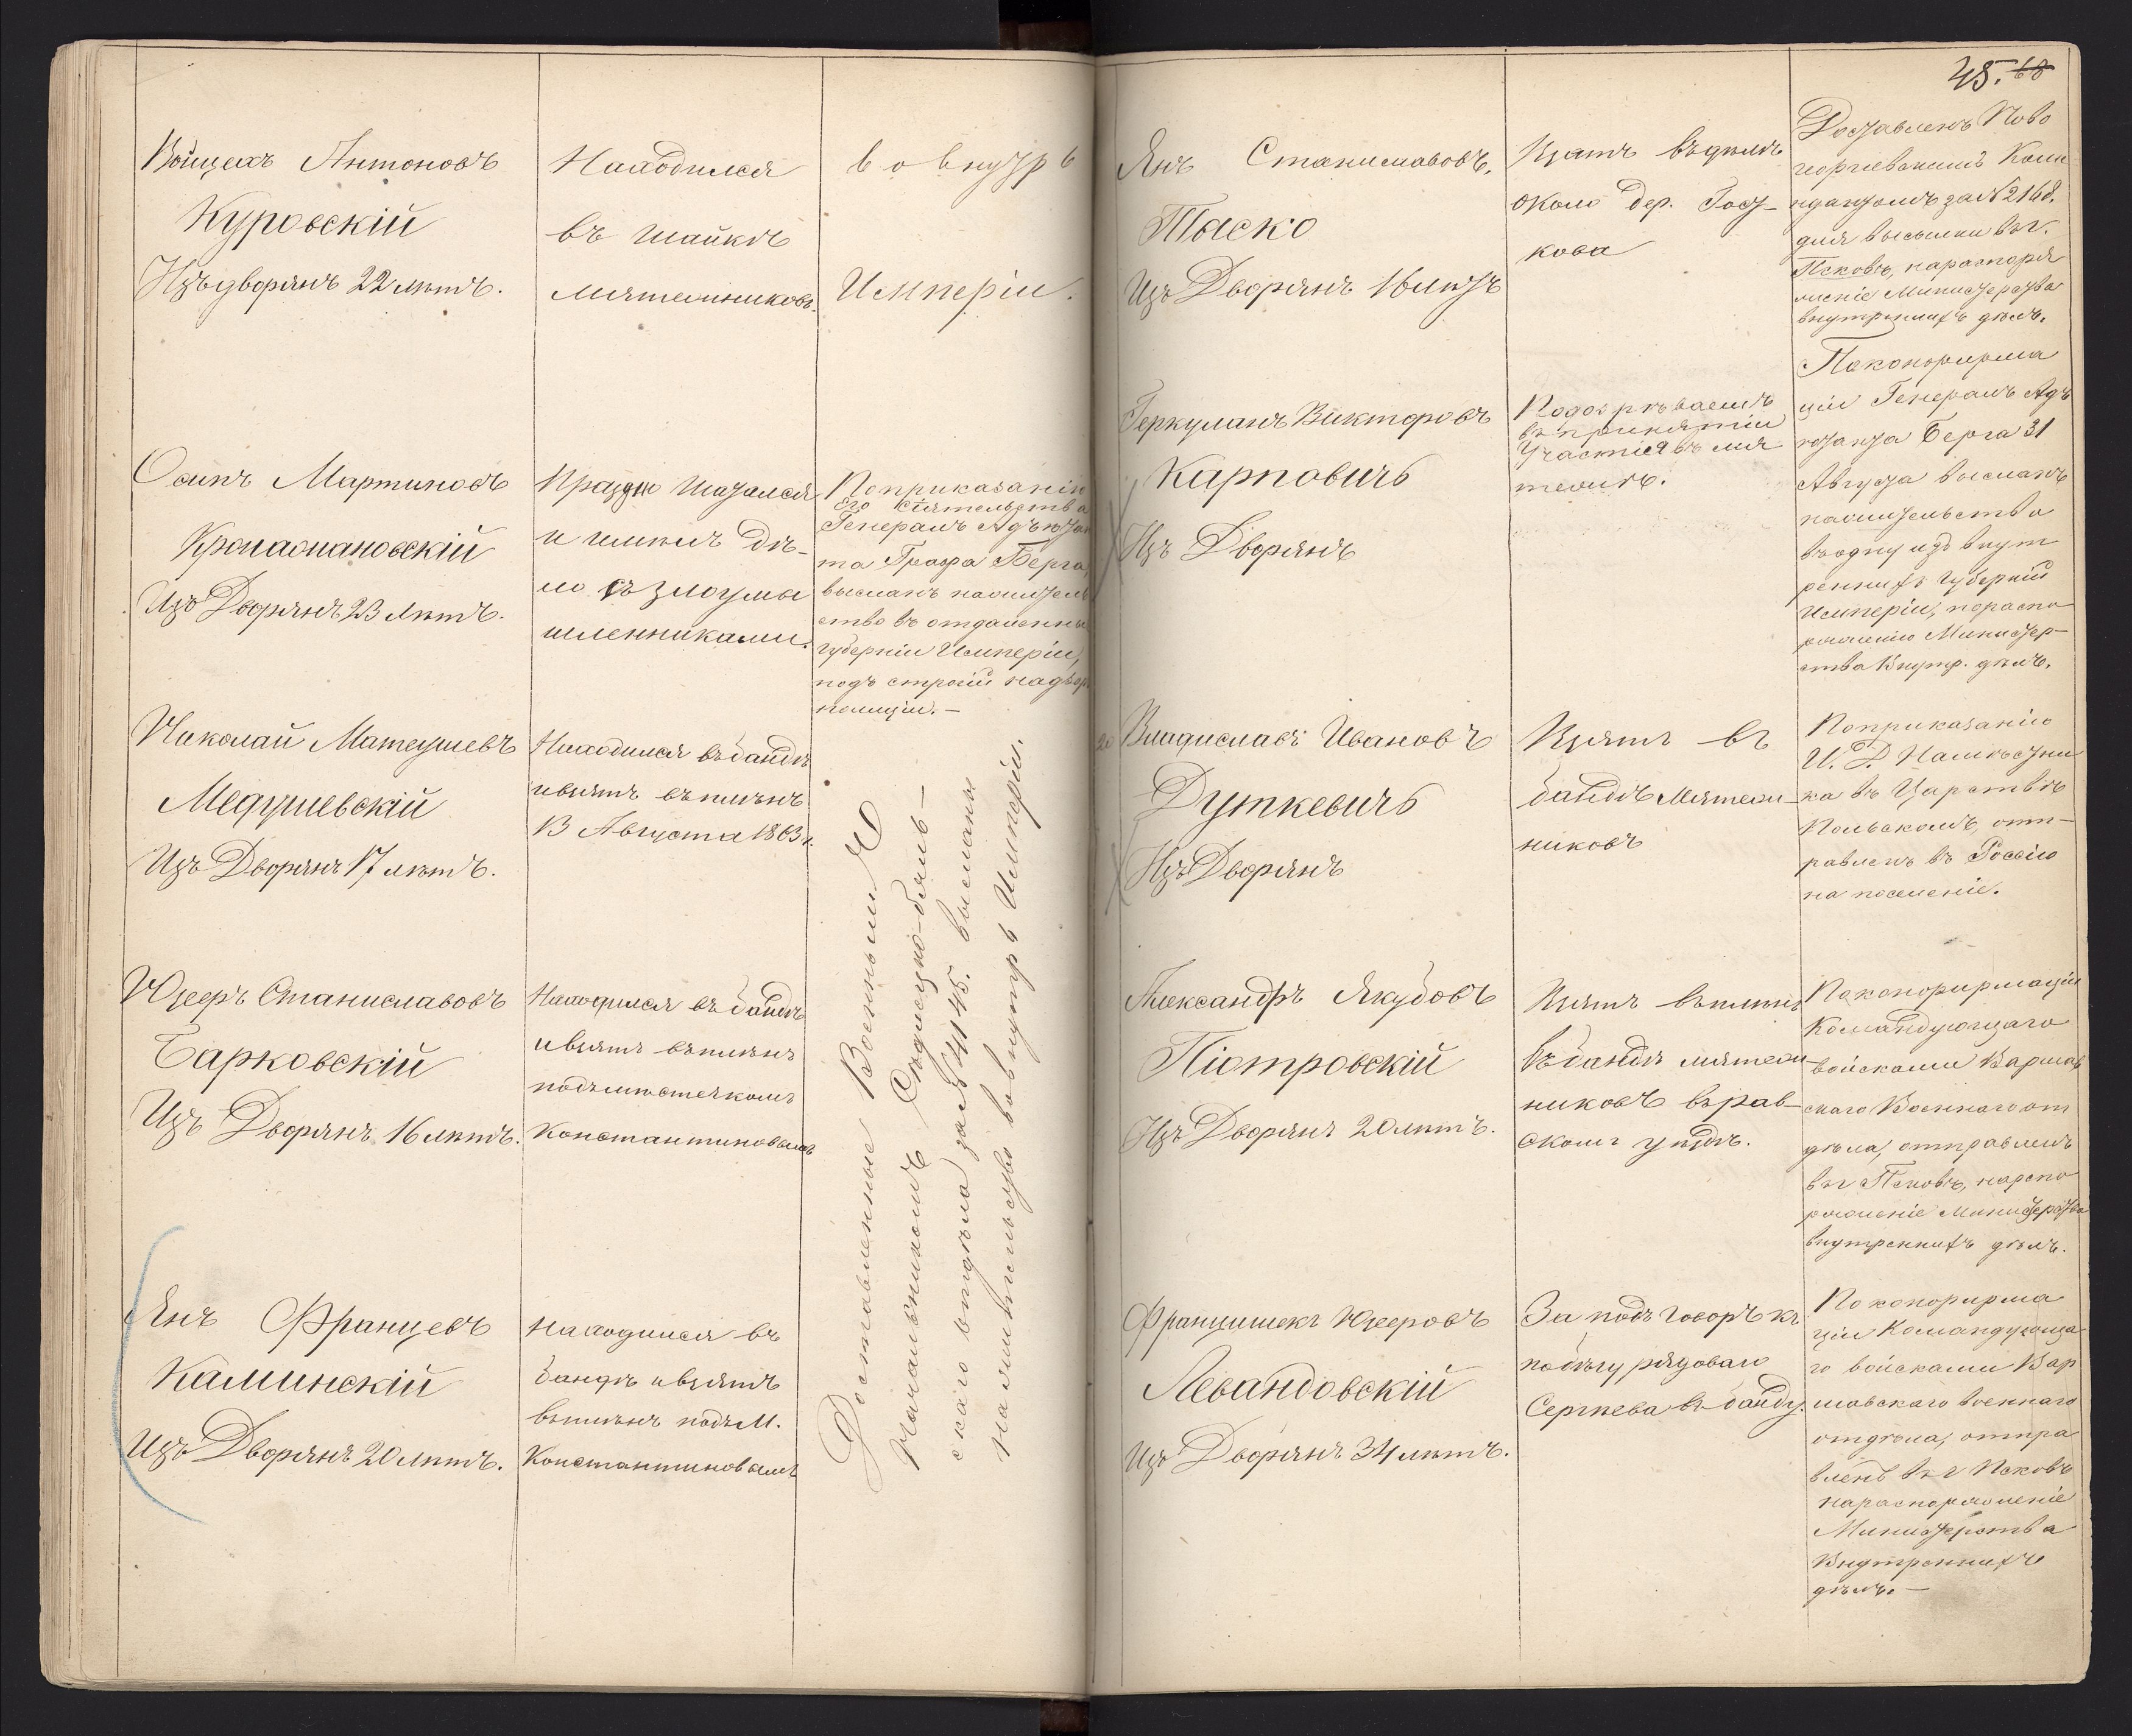 Войцехъ Антоновъ
Куровскій
Изъ дворянъ 22 лѣтъ.
Находился
въ шайкѣ
мятежниковъ.
во внутрь
Имперіи.
Осипъ Мартиновъ
Изъ Дворянъ 23 лѣтъ.
Праздно шатался
и имѣлъ дѣ-
ло съ злоумы
шленниками.
По приказанію
Его Сіятельства
Генералъ Адъютан
та Графа Берга,
высланъ на житель
ство въ отдаленны
губерніи Имперіи,
подъ строгій надзор
полиціи.—
Николай Матеушевъ
Медушевскій
Изъ Дворянъ 17 лѣтъ.
Находился въ бандѣ
и взятъ въ плѣнъ
13 Августа 1863 г.
Юзефъ Станиславовъ
Барковскій
Изъ Дворянъ 16 лѣтъ.
Находился въ бандѣ
и взятъ въ плѣнъ
подъ мѣстечкомъ
Константиновымъ
Янъ Францевъ
Каминскій
Изъ Дворянъ 20 лѣтъ.
Находился въ
бандѣ и взятъ
въ плѣнъ подъ М.
Константиновымъ
Доставленные Военнымъ
Начальникомъ Сѣдлецко-Бѣль-
скаго отдѣла за № 4145. высланы
на жительство во внутрь Имперіи.
45. 68
Янъ Станиславовъ.
Тыско
Изъ Дворянъ 16 лѣтъ
Взятъ въ дѣлѣ
около дер. Гост-
кова
Доставленъ Ново
георгіевскимъ Коме
ндантомъ за № 2168.
для высылки въ г.
Псковъ, на распоря
женіе Министерства
внутреннихъ дѣлъ.
Геркуланъ Викторовъ
Карповичъ
Изъ Дворянъ
Подозрѣваемъ
въ принятіи
участія въ мя
тежѣ.
По конфирма
ціи Генералъ Адъ
ютанта Берга 31
Августа высланъ
на жительство
въ одну изъ внут
реннихъ губерній
Имперіи, по распо
ряженію Министер-
ства Внутр. дѣлъ.
20 Владиславъ Ивановъ
Дуткевичъ
Изъ Дворянъ
Взятъ въ
бандѣ мятеж-
никовъ
По приказанію
И. Д. Намѣстни
ка въ Царствѣ
Польскомъ, отп-
равленъ въ Россію
на поселеніе.
Александръ Якубовъ
Піотровскій
Изъ Дворянъ 20 лѣтъ.
Взятъ въ плѣнъ
въ бандѣ мятеж-
никовъ въ рав-
скомъ уѣздѣ.
По конфирмаціи
Командующаго
войсками Варшав
скаго Военнаго от
дѣла, отправленъ
въ г Псковъ, на распо
ряженіе Министерства
внутреннихъ дѣлъ.
Францишекъ Юзефовъ
Левандовскій
Изъ Дворянъ 34 лѣтъ.
За подъ говоръ къ
побѣгу рядоваго
Сергѣева въ банду.
По конфирма
ціи Командующа
го войсками Вар
шавскаго военнаго
отдѣла, отпра
вленъ въ г Псковъ
на распоряженіе
Министерства
Внутреннихъ
дѣлъ.—